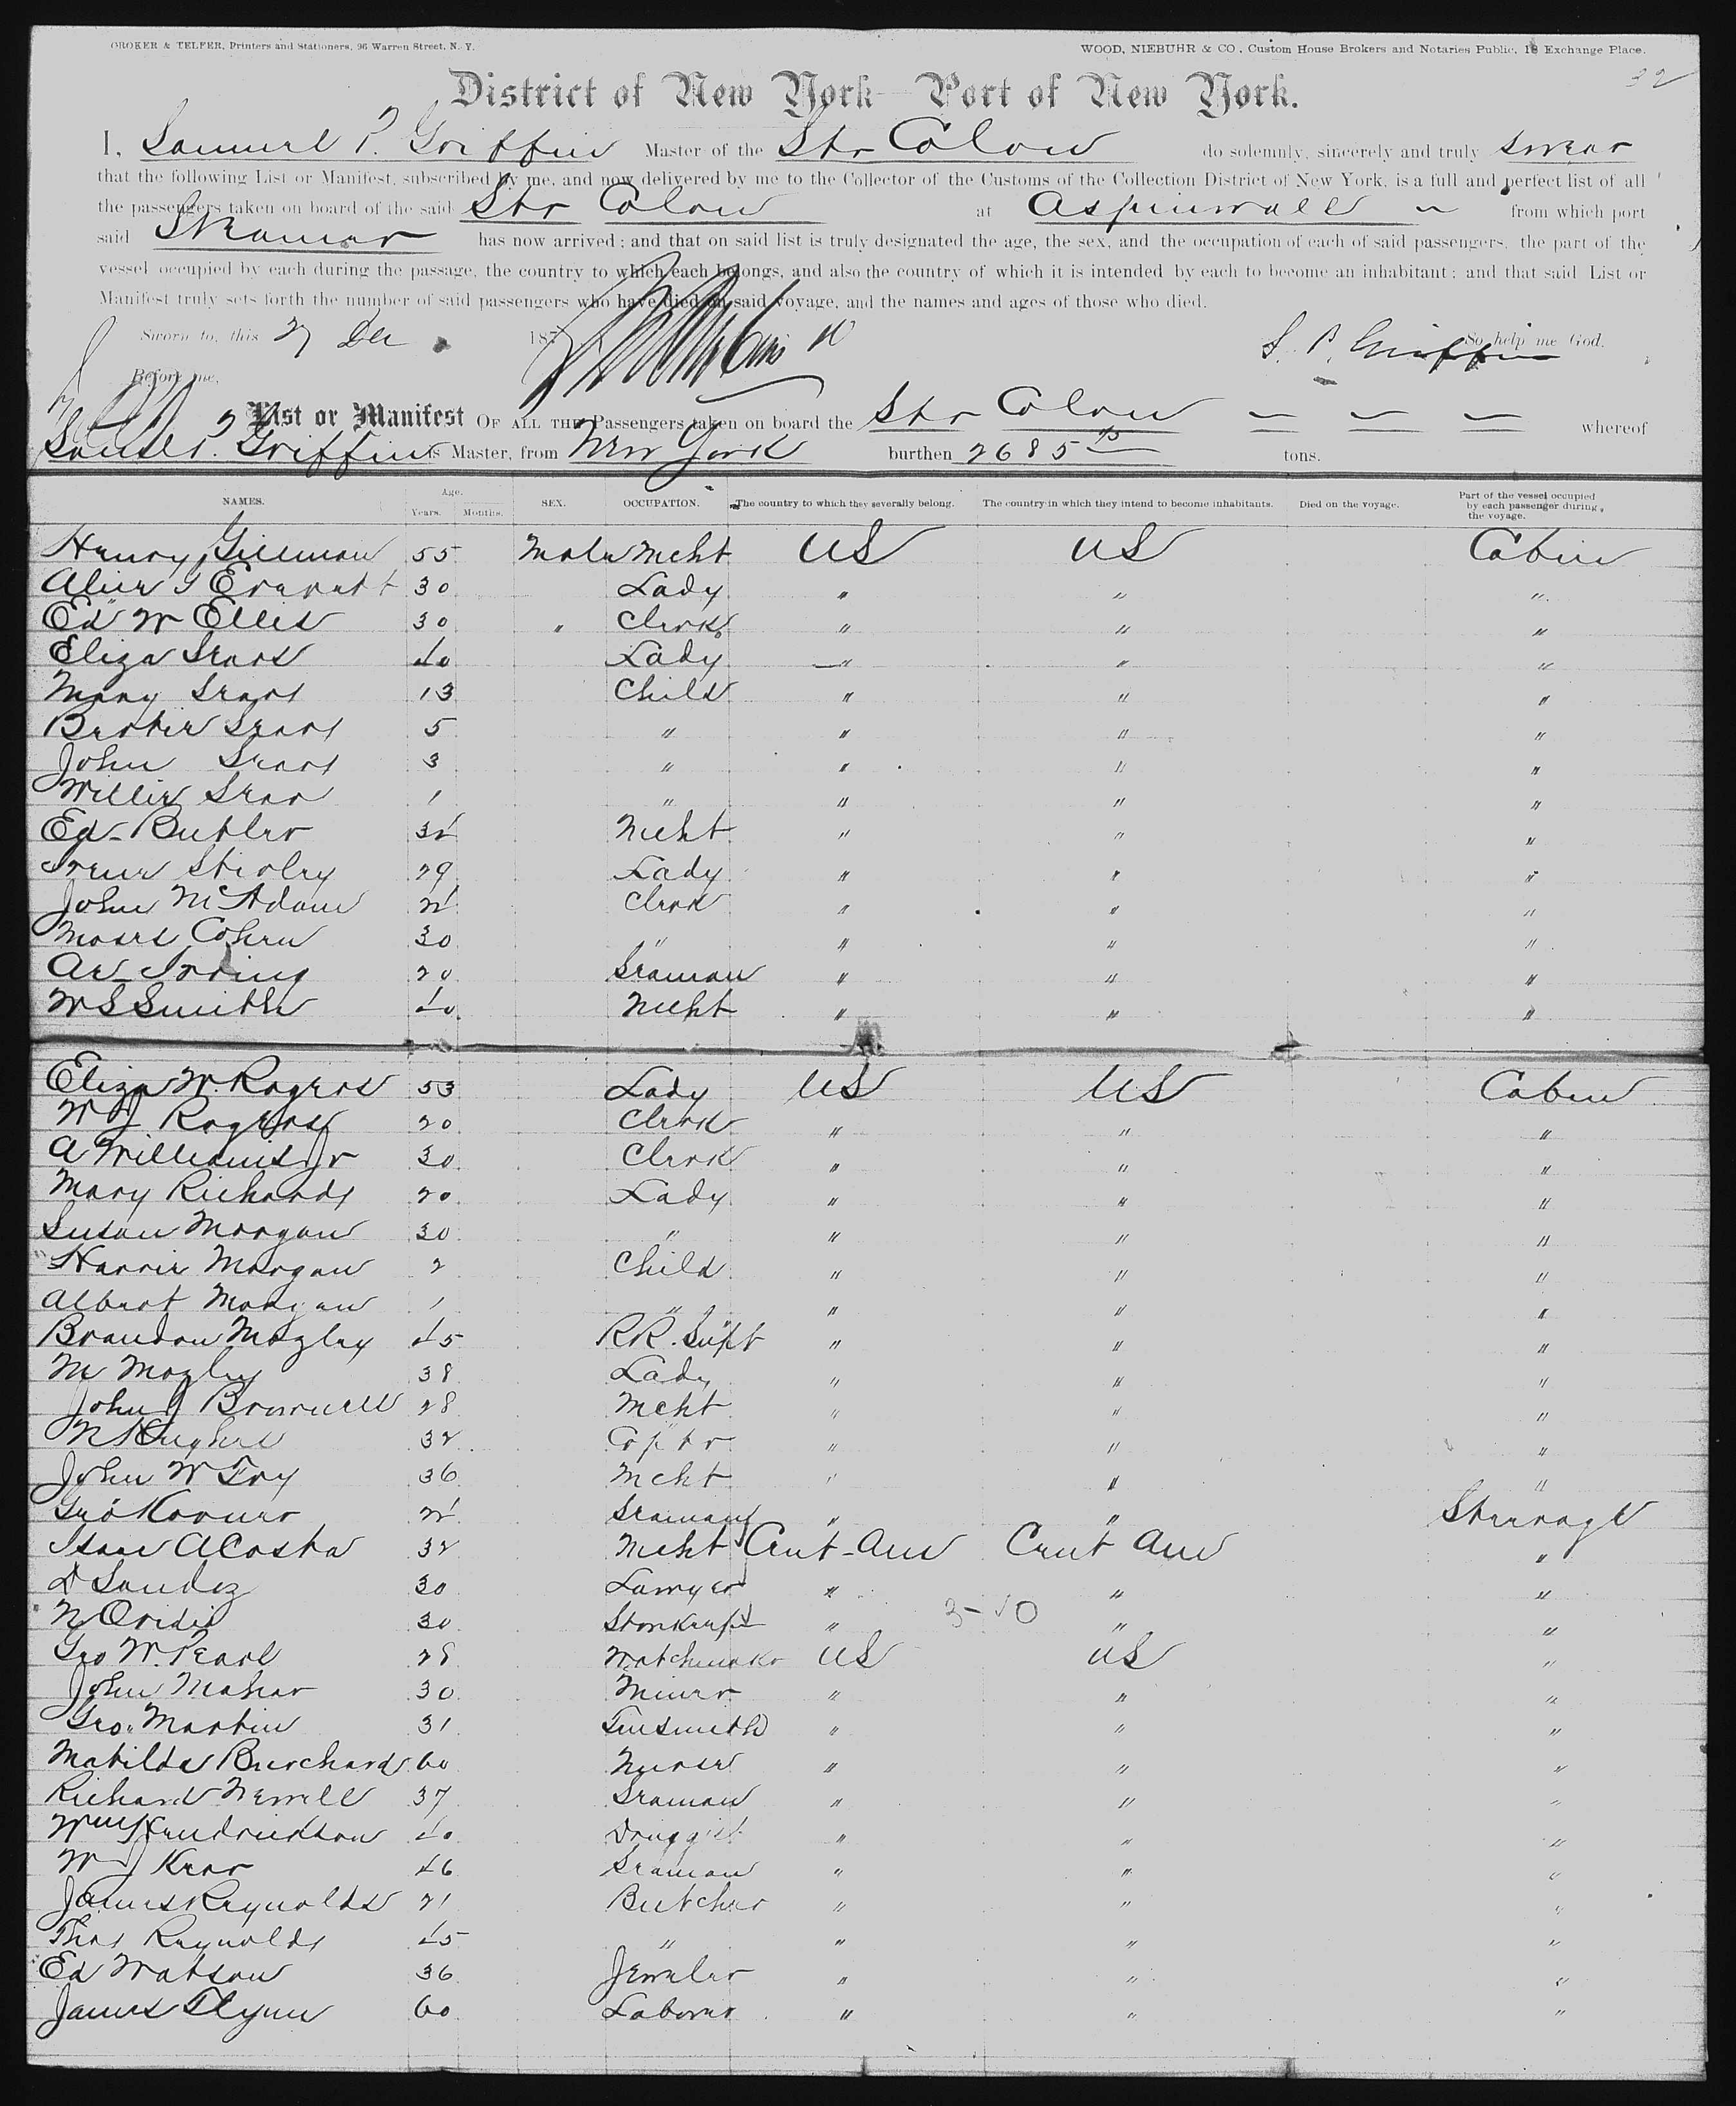 CROKER & TELFER, Printers and Stationers, 96 Warren Street, N. Y. WOOD, NIEBUHR & CO., Custom House Brokers and Notaries Public, 18 Exchange Place.
32
District of New York—Port of New York.
I, Samuel P. Griffin Master of the Str Colon do solemnly, sincerely and truly swear
that the following List or Manifest, subscribed by me, and now delivered by me to the Collector of the Customs of the Collection District of New York, is a full and perfect list of all
the passengers taken on board of the said Str Colon at Aspinwall from which port
said Steamer has now arrived; and that on said list is truly designated the age, the sex, and the occupation of each of said passengers, the part of the
vessel occupied by each during the passage, the country to which each belongs, and also the country of which it is intended by each to become an inhabitant; and that said List or
Manifest truly sets forth the number of said passengers who have died on said voyage, and the names and ages of those who died.
Sworn to, this 27 Dec 187 S. P. Griffin So help me God.
Before me,
List or Manifest OF ALL THE Passengers taken on board the Str Colon whereof
Saml P. Griffin is Master, from New York burthen 2685 tons.
NAMES. Age. Years. Months. SEX. OCCUPATION. The country to which they severally belong. The country in which they intend to become inhabitants. Died on the voyage. Part of the vessel occupied by each passenger during the voyage.
Henry Gillman 55 Male Mcht US US Cabin
Alice J Everett 30 Lady " " "
Ed W Ellis 30 " Clerk " " "
Eliza Sears 40 Lady " " "
Mary Sears 13 Child " " "
Bertie Sears 5 " " " "
John Sears 3 " " " "
Willie Sear 1 " " " "
Ed Butler Mcht " " "
Irene Shirley 29 Lady " " "
John McAdam Clerk " " "
Moses Cohen 30 " " " "
Irving 20 Seaman " " "
W S Smith 40 Mcht " " "
Eliza W. Rogers 53 Lady US US Cabin
W J Rogers 20 Clerk " " "
A Williams Jr 30 Clerk " " "
Mary Richards 20 Lady " " "
Susan Morgan 30 " " " "
Harrie Morgan 2 Child " " "
Albert Morgan 1 " " " "
Brandon Mozley 45 RR. Supt " " "
M Mozley 38 Lady " " "
John J Brownell 28 Mcht " " "
N Hughes 32 Capt " " "
John W Foy 36 Mcht " " "
Geo Seaman " " Steerage
Isaac ACosta 32 Mcht Cent Am Cent Am "
D Sandoz 30 Lawyer " " "
N 30 Storekeeper " " "
Geo W. Pearl 28 Watchmaker US US "
John Mahar 30 Miner " " "
Geo. Martin 31 Tinsmith " " "
Matilda Burchard 60 Nurse " " "
Richard Newell 37 Seaman " " "
Wm Hendrickson 40 Druggist " " "
W J Kerr 46 Seaman " " "
James Reynolds 21 Butcher " " "
Thos Reynolds 45 " " " "
Ed Watson 36 Jeweler " " "
James Flynn 60 Laborer " " "